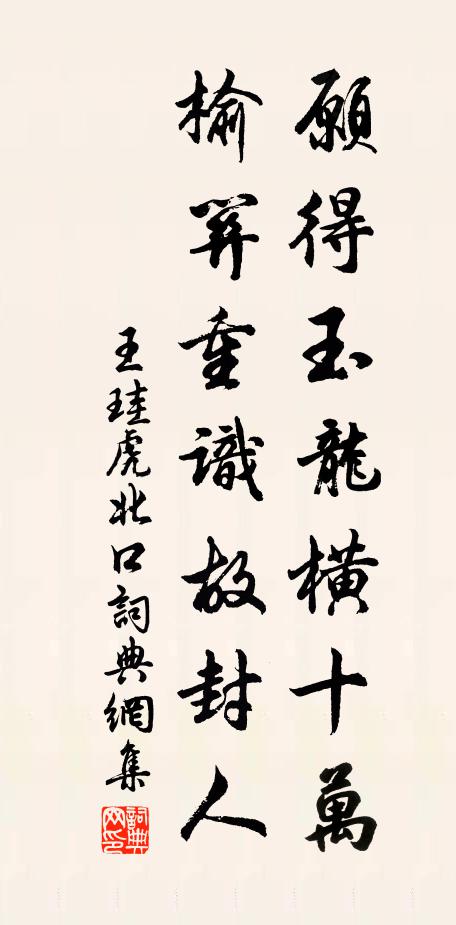 願得玉龍橫十萬
榆關重識故封人
王珪虎北口詞典網集
詞典網印